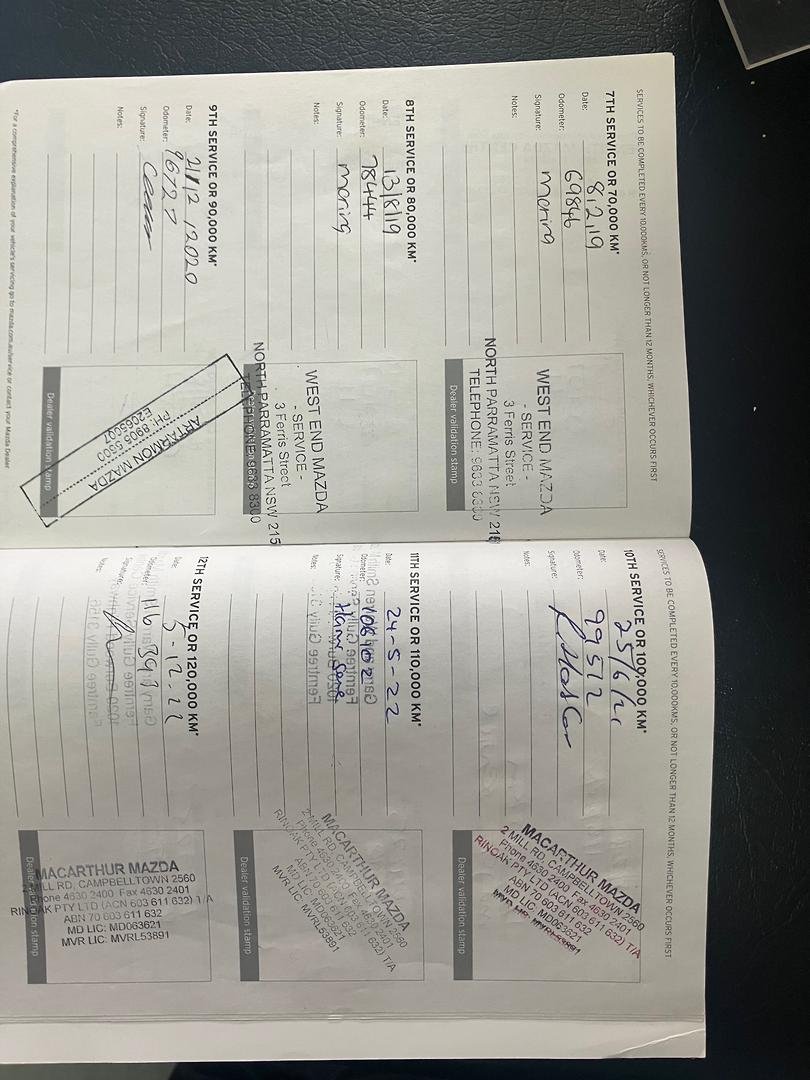 SERVICES TO BE COMPLETED EVERY 10,000KMS, OR NOT LONGER THAN 12 MONTHS, WHICHEVER OCCURS FIRST
7TH SERVICE OR 70,000 KM*
Date: 8.2.19
Odometer: 69846
Signature:
Notes:
WEST END MAZDA
- SERVICE -
3 Ferris Street
NORTH PARRAMATTA NSW 215
TELEPHONE: 9633 8300
Dealer validation stamp
8TH SERVICE OR 80,000 KM*
Date: 13/8/19
Odometer: 78444
Signature:
Notes:
WEST END MAZDA
- SERVICE -
3 Ferris Street
NORTH PARRAMATTA NSW 215
TELEPHONE: 8300
9TH SERVICE OR 90,000 KM*
Date: 21/12/2020
Odometer: 96727
Signature:
Notes:
ARTARMON MAZDA
PH: 8905 5300
Dealer validation stamp
*For a comprehensive explanation of your vehicle's servicing go to mazda.com.au/service or contact your Mazda Dealer
SERVICES TO BE COMPLETED EVERY 10,000KMS, OR NOT LONGER THAN 12 MONTHS, WHICHEVER OCCURS FIRST
10TH SERVICE OR 100,000 KM*
Date: 25/6/21
Odometer: 99512
Signature:
Notes:
MACARTHUR MAZDA
2 MILL RD, CAMPBELLTOWN 2560
Phone 4630 2400 Fax 4630 2401
RINOAK PTY LTD (ACN 603 611 632) T/A
ABN 70 603 611 632
MD LIC: MD063621
MVR LIC: MVRL53891
Dealer validation stamp
11TH SERVICE OR 110,000 KM*
Date: 24-5-22
Odometer:
Signature:
Notes:
MACARTHUR MAZDA
2 MILL RD, CAMPBELLTOWN 2560
Phone 4630 2400 Fax 4630 2401
RINOAK PTY LTD (ACN 603 611 632) T/A
ABN 70 603 611 632
MD LIC: MD063621
MVR LIC: MVRL53891
Dealer validation stamp
12TH SERVICE OR 120,000 KM*
Date: 5-12-22
Odometer: 116393
Signature:
Notes:
MACARTHUR MAZDA
2 MILL RD, CAMPBELLTOWN 2560
Phone 4630 2400 Fax 4630 2401
RINOAK PTY LTD (ACN 603 611 632) T/A
ABN 70 603 611 632
MD LIC: MD063621
MVR LIC: MVRL53891
Dealer validation stamp